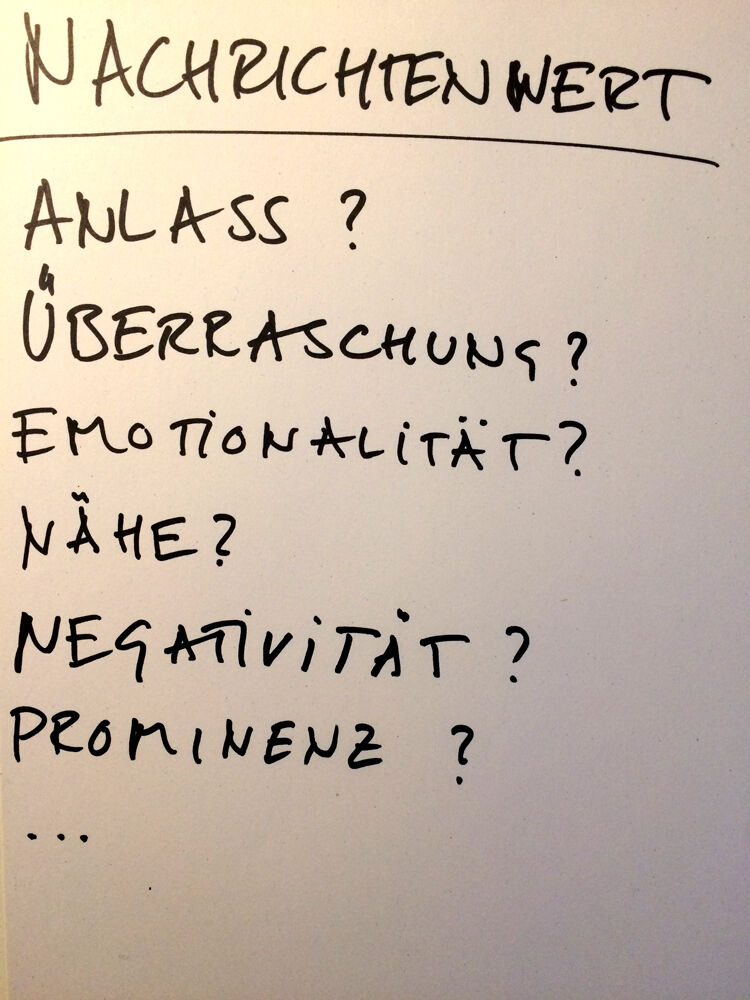 NACHRICHTENWERT
ANLASS ?
ÜBERRASCHUNG?
EMOTIONALITÄT?
NÄHE?
NEGATIVITÄT ?
PROMINENZ ?
...